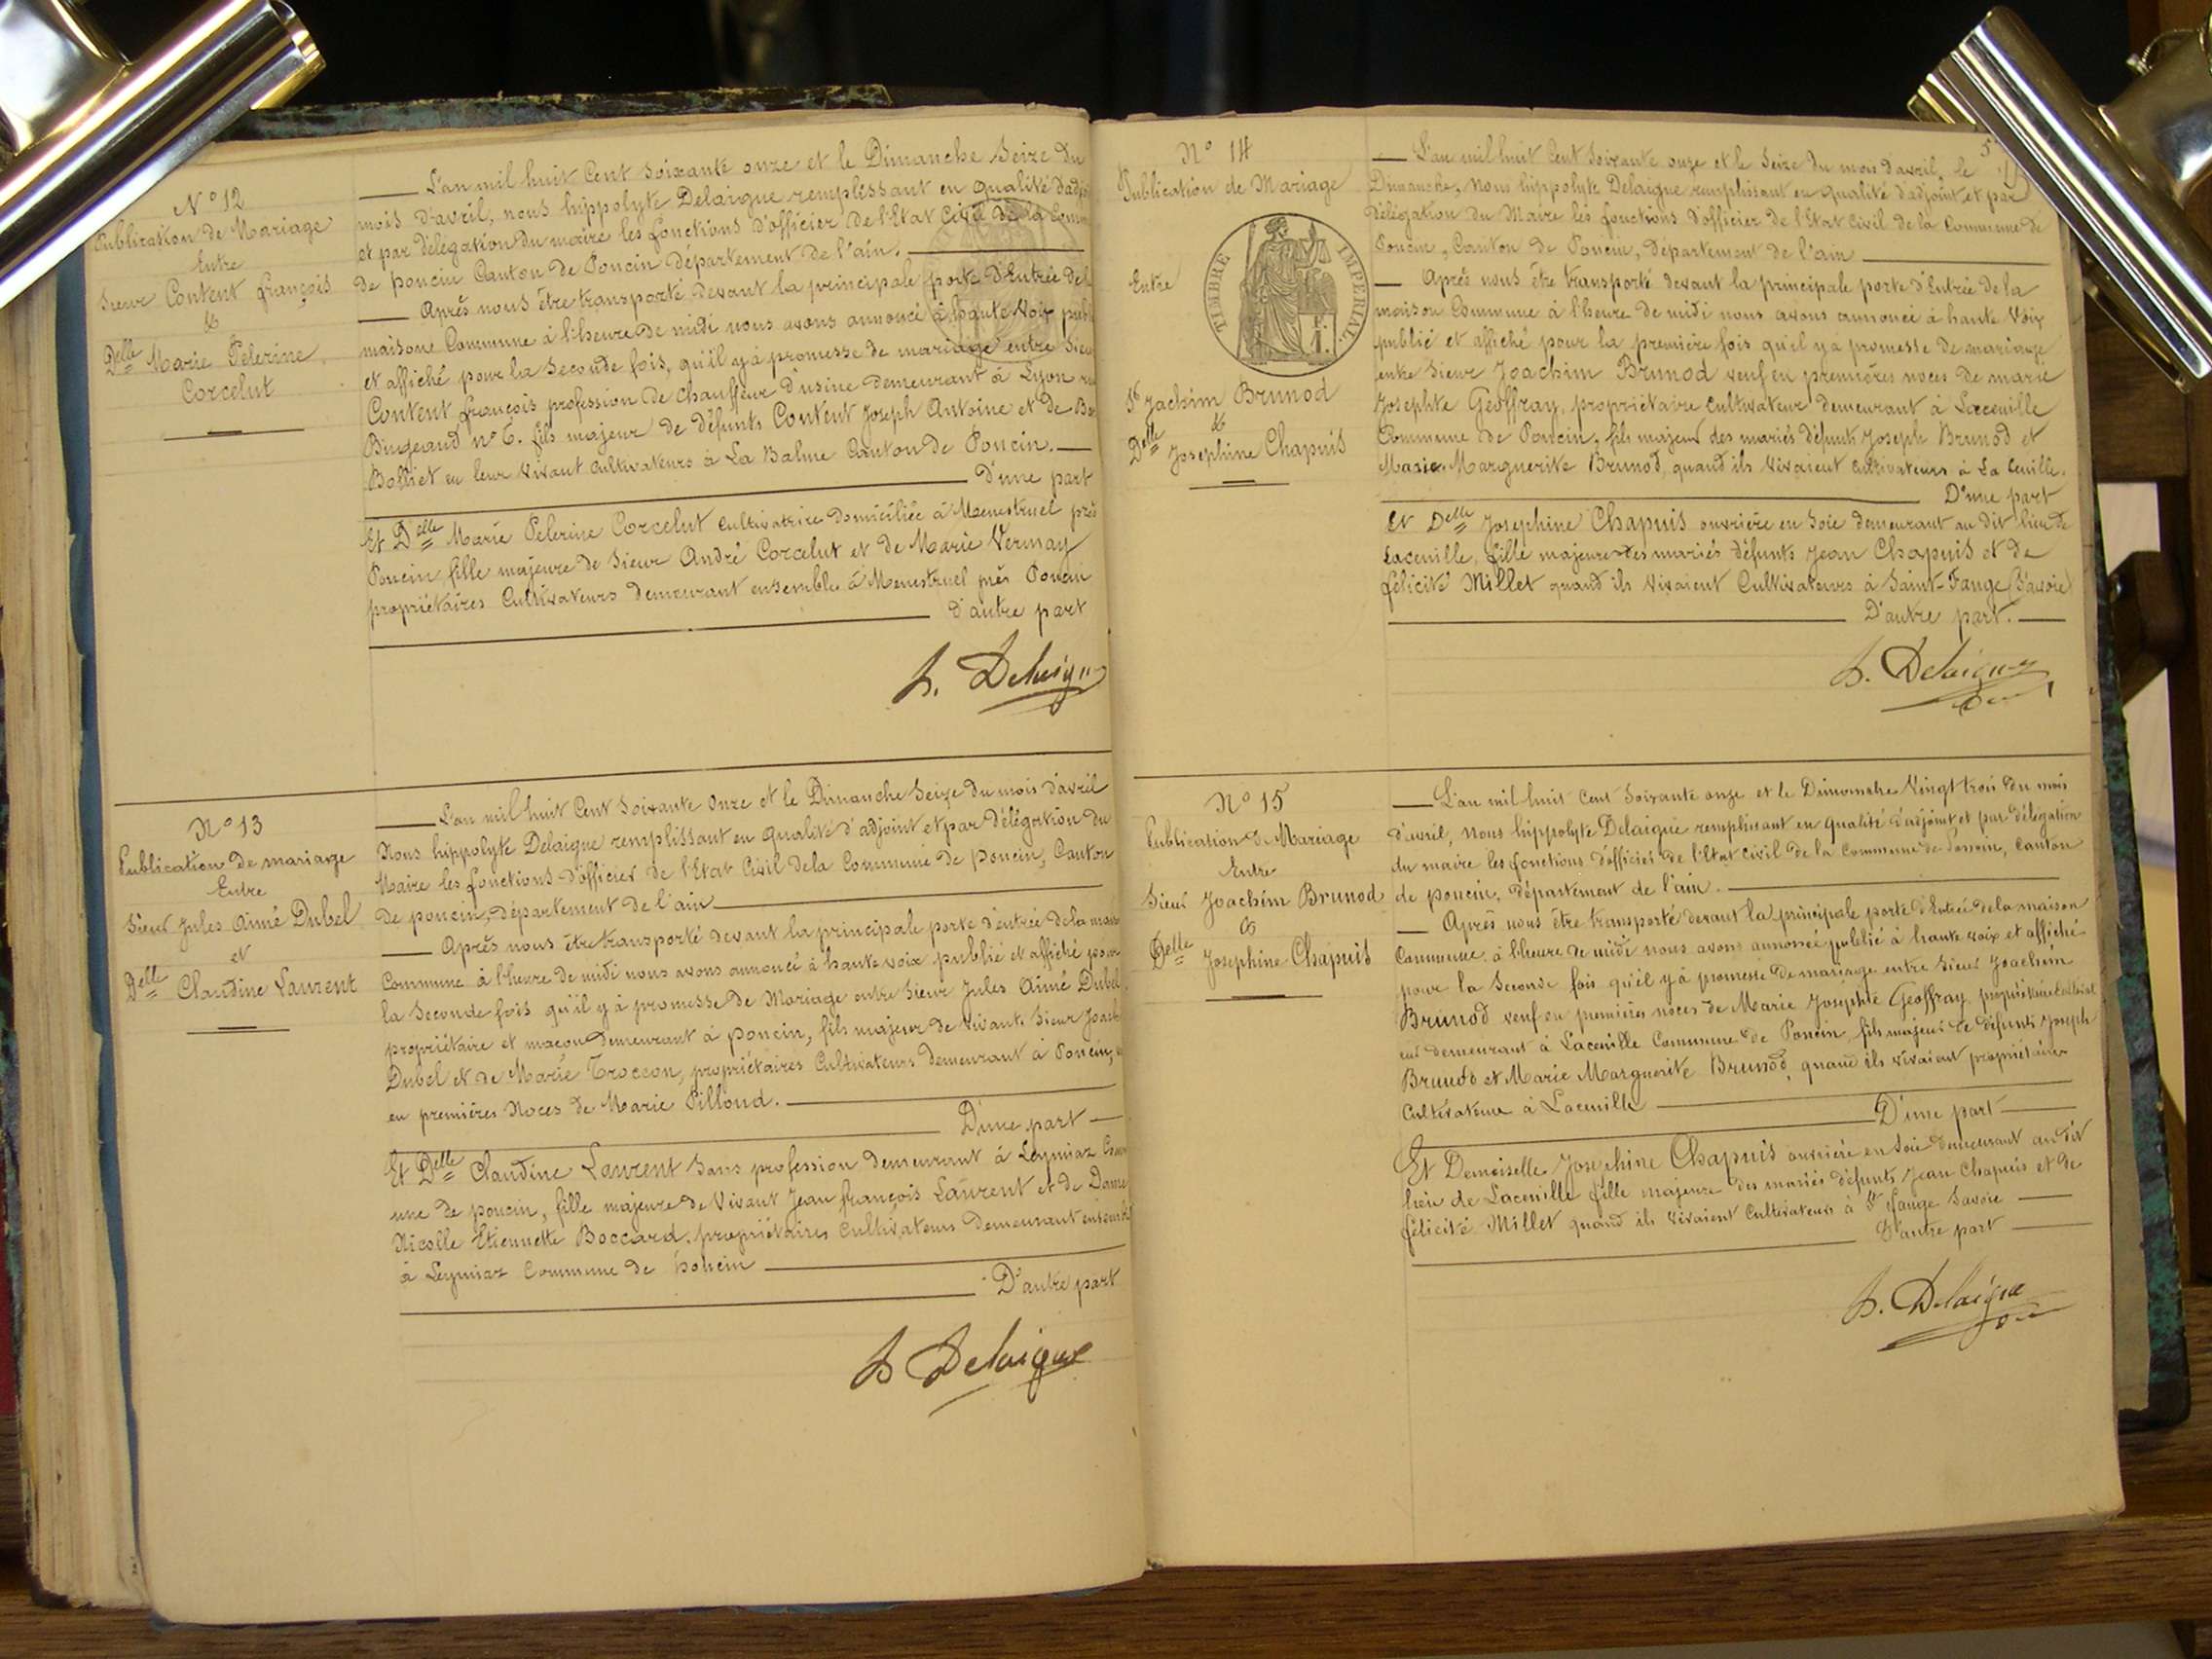 N° 12
Publication de Mariage
Entre
Sieur Content françois
&
Delle Marie Pelerine
Corcelut
L'an mil huit Cent soixante onze et le Dimanche Seize du
mois d'avril, nous hippolyte Delaigue remplissant en qualité d'adj
et par délégation du maire les fonctions d'officier de l'Etat Civil de la Comm
de poncin Canton de Poncin département de l'ain.
Après nous être transporté devant la principale porte d'Entrée de l
maisone Commune à l'heure de midi nous avons annoncé à haute Voix publ
et affiché pour la Seconde fois, qu'il y à promesse de mariage entre Sieu
Content françois profession de chauffeur d'usine demeurant à Lyon ru
Bugeaud n° 6. fils majeur de défunts Content Joseph Antoine et de
Bolliet en leur vivant cultivateurs à La Balme Canton de Poncin.
D'une part
Et Delle Marie Pelerine Corcelut cultivatrice domiciliée à Menestruel près
Poncin fille majeure de Sieur André Corcelut et de Marie Vernay
propriétaires Cultivateurs demeurant ensembles à Menestruel près Poncin
d'autre part
h. Delaigue
N° 13
Publication de mariage
Entre
Sieur Jules Aimé Dubel
et
Delle Claudine Laurent
L'an mil huit Cent Soixante Onze et le Dimanche Seize du mois d'avril
Nous hippolyte Delaigue remplissant en qualité d'adjoint et par délégation du
Maire les fonctions d'officier de l'Etat Civil de la Commune de poncin, Canton
de poncin, département de l'ain
Après nous être transporté devant la principale porte d'entrée de la mais
Commune à l'heure de midi nous avons annoncé à haute voix publié et affiché pour
la Seconde fois qu'il y à promesse de Mariage entre Sieur Jules Aimé Dubel,
propriétaire et maçon demeurant à poncin, fils majeur de vivants Sieur Joach
Dubel et de Marie Troccon, propriétaires Cultivateurs demeurant à Poncin,
en premières Noces de Marie Pilloud.
D'une part
Et Delle Claudine Laurent Sans profession demeurant à Leymiaz Com
une de poncin, fille majeure de Vivant Jean françois Laurent et de Dame
Nicolle Etiennette Boccard, propriétaires cultivateurs demeurant ensemble
à Leymiaz Commune de Poncin
D'autre part
h Delaigue
5
N° 14
Publication de Mariage
Entre
TIMBRE IMPERIAL
Sr Joachim Brunod
&
Delle Josephine Chapuis
L'an mil huit Cent Soixante onze et le Seize du mois d'avril, le
Dimanche, Nous hippolyte Delaigue remplissant en qualité d'adjoint et par
délégation du Maire les fonctions d'officier de l'Etat Civil de la Commune de
Poncin, Canton de Poncin, département de l'ain
Après nous être transporté devant la principale porte d'Entrée de la
maison Commune à l'heure de midi nous avons annoncé à haute Voix
publié et affiché pour la première fois qu'il y a promesse de mariage
entre Sieur Joachim Brunod veuf en premières noces de marie
Josephte Géoffray, propriétaire cultivateur demeurant à Laceuille
Commune de Poncin, fils majeur des mariés défunts Joseph Brunod et
Marie Marguerite Brunod, quand ils vivaient cultivateurs à La Ceuille.
D'une part
Et Delle Josephine Chapuis ouvrière en Soie demeurant au dit lieu de
Laceuille, fille majeure des mariés défunts Jean Chapuis et de
félicité Millet quand ils vivaient Cultivateurs à Saint-Fange (Savoie)
D'autre part.
h. Delaigue
N° 15
Publication de Mariage
Entre
Sieur Joachim Brunod
&
Delle Josephine Chapuis
L'an mil huit Cent Soixante onze et le Dimanche Vingt trois du mois
d'avril, Nous hippolyte Delaigue remplissant en qualité d'adjoint et par délégation
du maire les fonctions d'officier de l'Etat Civil de la Commune de Poncin, Canton
de poncin, département de l'ain.
Après nous être transporté devant la principale porte d'Entrée de la maison
Commune à l'heure de midi nous avons annoncé publié à haute voix et affiché
pour la Seconde fois qu'il y à promesse de mariage entre Sieur Joachim
Brunod veuf en premières noces de Marie Joséphte Geoffray propriétaire Cultivat
eur demeurant à Laceuille Commune de Poncin, fils majeur de défunts Joseph
Brunod et Marie Marguerite Brunod, quand ils vivaient propriétaires
Cultivateurs à Laceuille
D'une part
Et Demoiselle Josephine Chapuis ouvrière en Soie demeurant au dit
lieu de Laceuille fille majeure des mariés défunts Jean Chapuis et de
félicité Millet quand ils vivaient Cultivateurs à St Fange Savoie
D'autre part
h. Delaigue